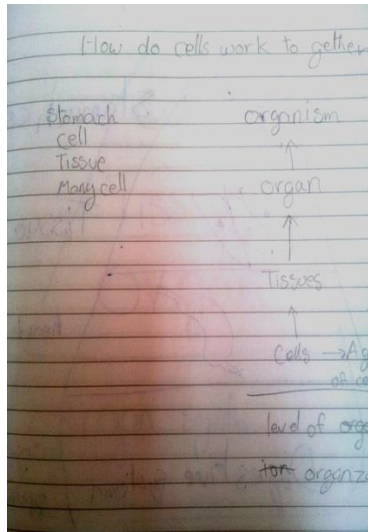 How do cells work to gether
Stomach
cell
Tissue
Many cell
organism
↑
organ
↑
Tissues
↑
Cells → Ag
of ce
level of orga
ion organza